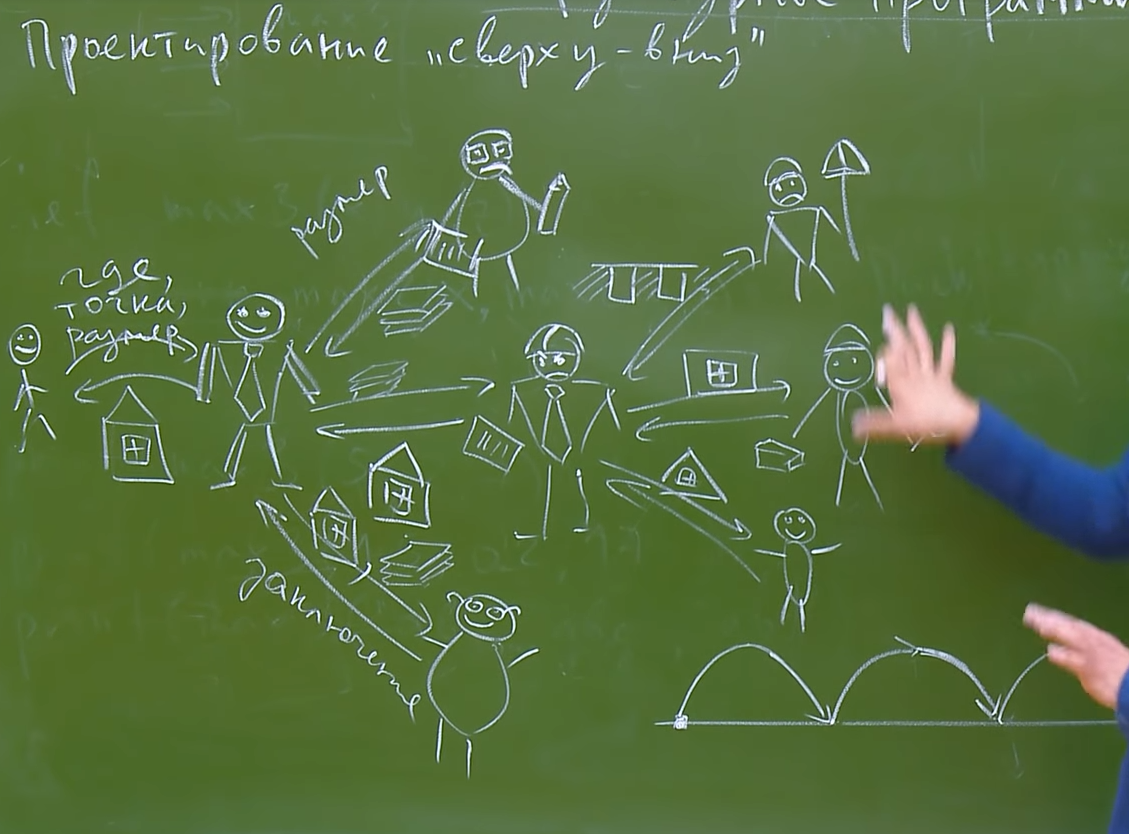 Проектирование „сверху-вниз"
размер
где,
точка,
размер
заключение